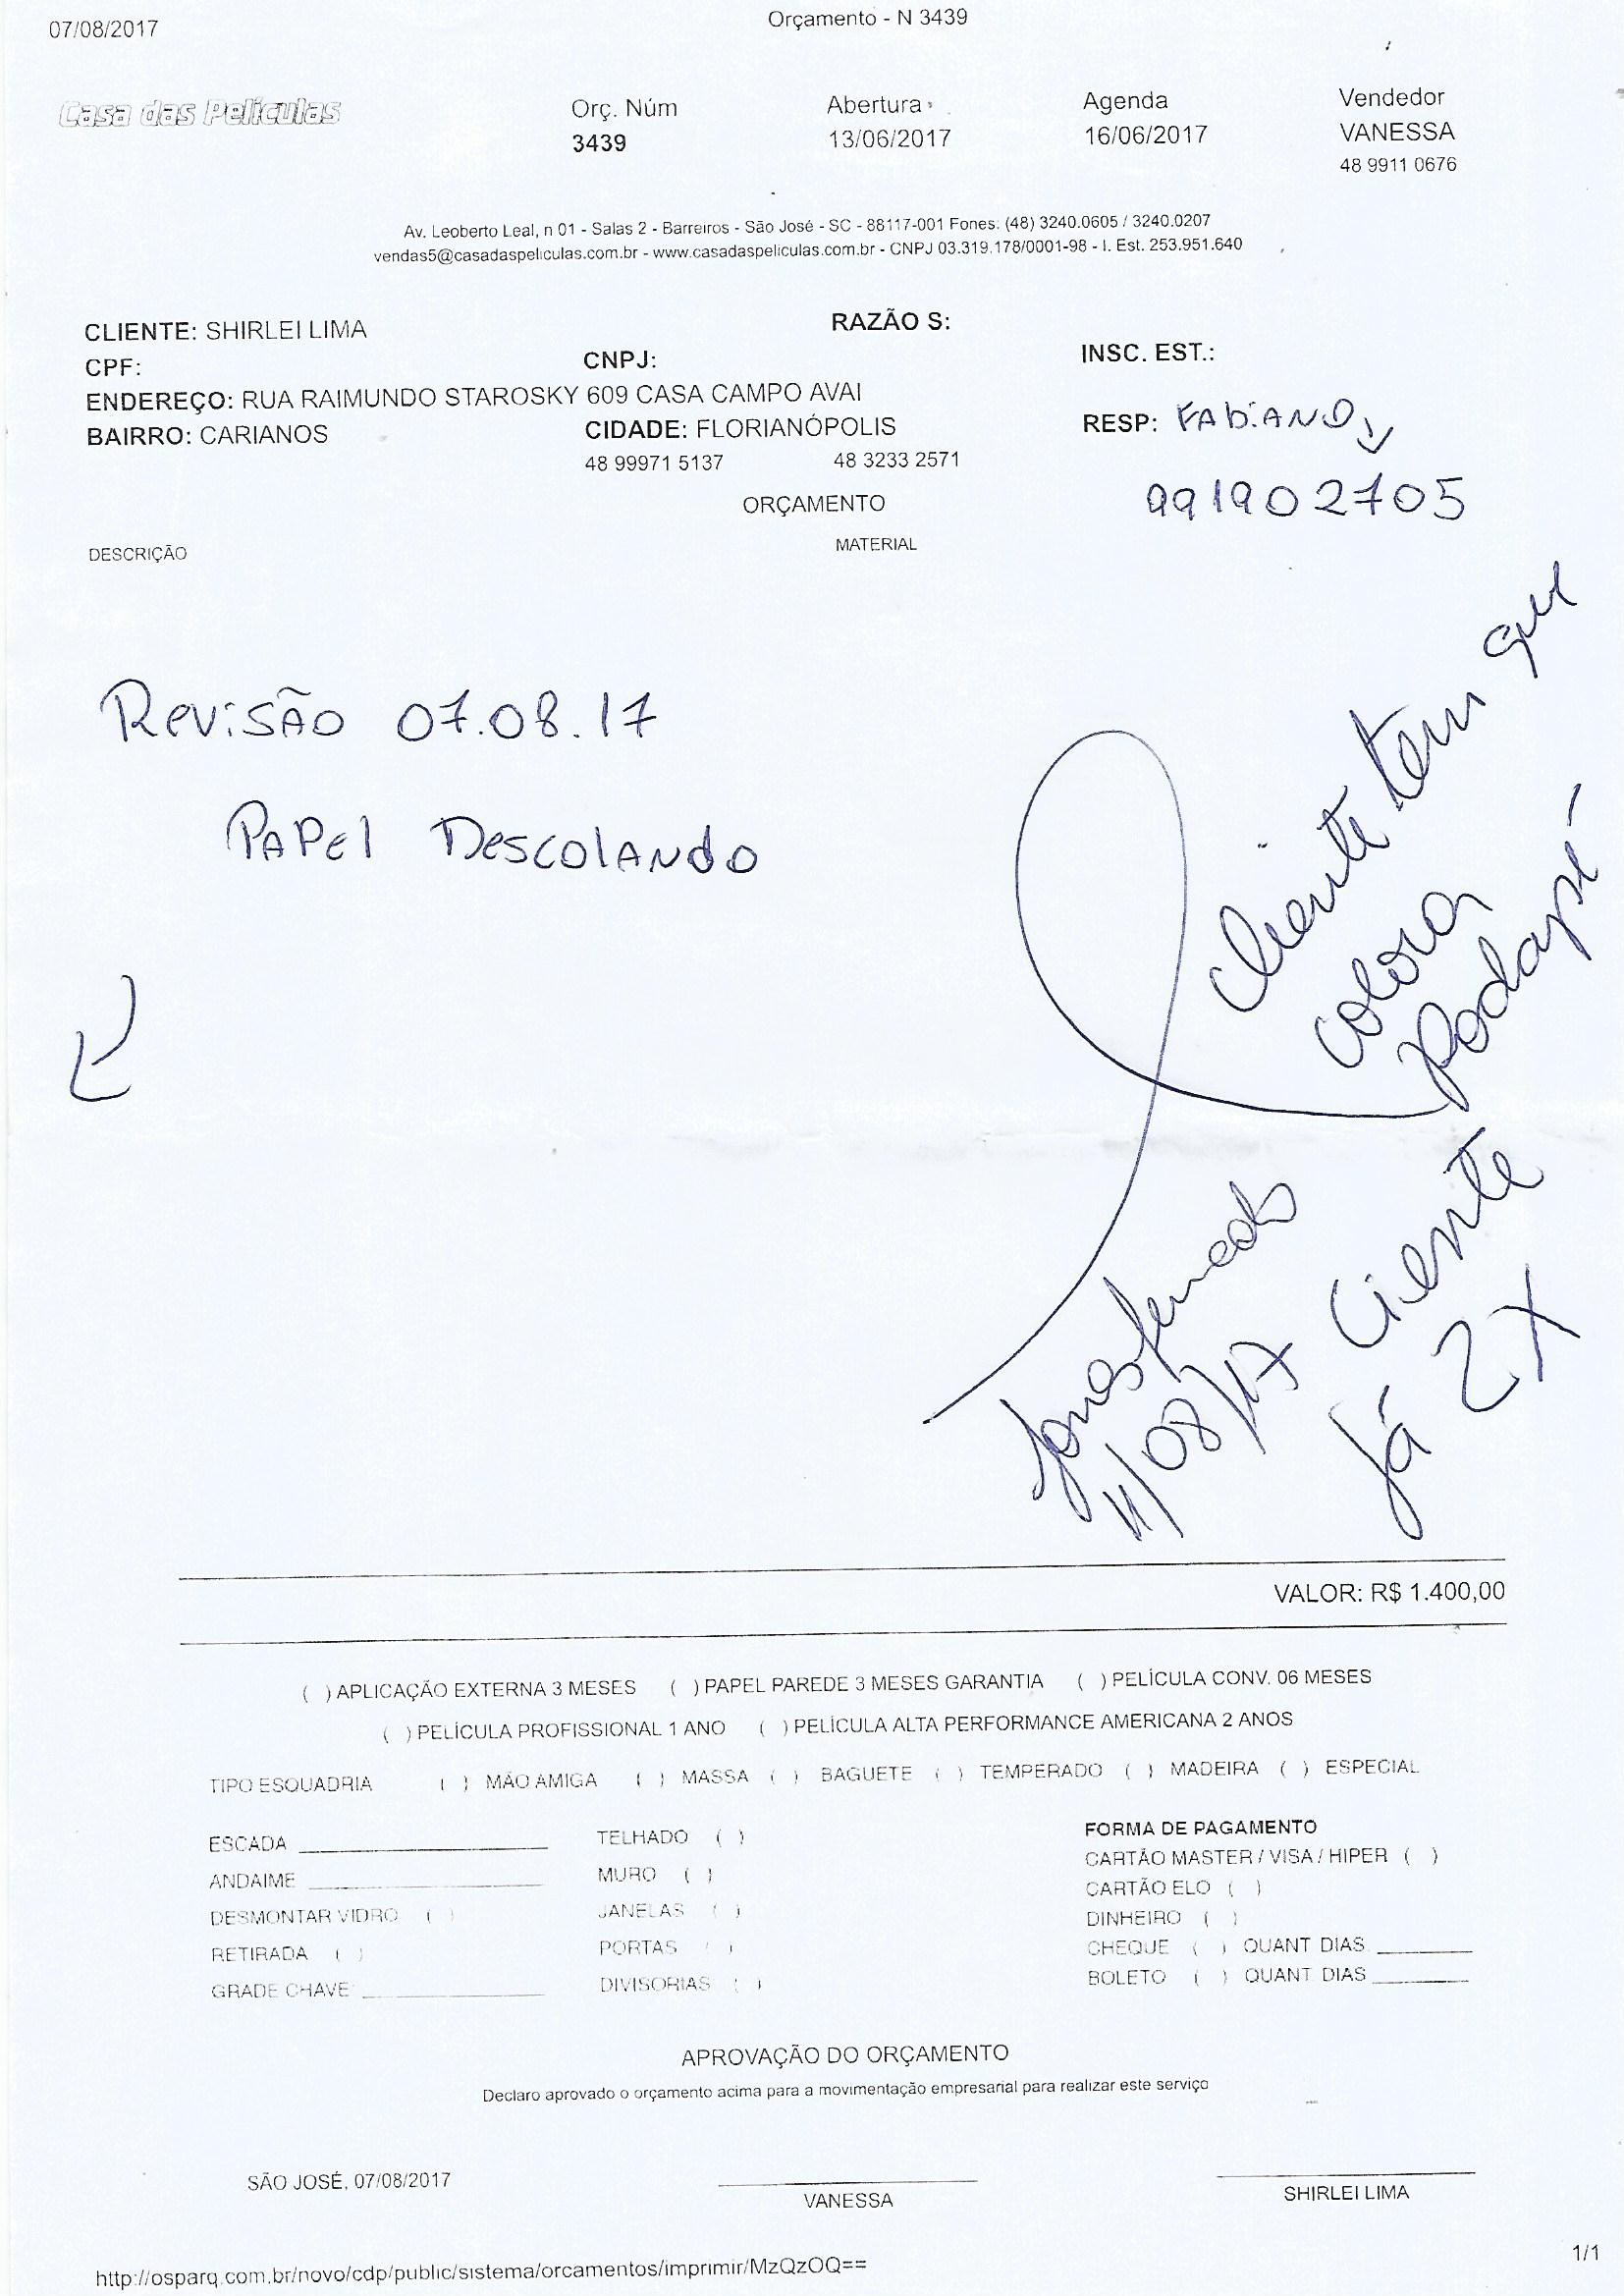 07/08/2017
Orçamento - N 3439
Casa das Películas
Orç. Núm
3439
Abertura
13/06/2017
Agenda
16/06/2017
Vendedor
VANESSA
48 9911 0676
Av. Leoberto Leal, n 01 - Salas 2 - Barreiros - São José - SC - 88117-001 Fones: (48) 3240.0605 / 3240.0207
vendas5@casadaspeliculas.com.br - www.casadaspeliculas.com.br - CNPJ 03.319.178/0001-98 - I. Est. 253.951.640
CLIENTE: SHIRLEI LIMA
RAZÃO S:
CPF:
CNPJ:
INSC. EST.:
ENDEREÇO: RUA RAIMUNDO STAROSKY 609 CASA CAMPO AVAI
BAIRRO: CARIANOS
CIDADE: FLORIANÓPOLIS
RESP: FABIANO
48 99971 5137
48 3233 2571
991902705
ORÇAMENTO
DESCRIÇÃO
MATERIAL
Revisão 07.08.17
Papel Descolando
Cliente tem que
colocar
Rodapé
Ciente
Já 2X
11/08/17
VALOR: R$ 1.400,00
( ) APLICAÇÃO EXTERNA 3 MESES ( ) PAPEL PAREDE 3 MESES GARANTIA ( ) PELÍCULA CONV. 06 MESES
( ) PELÍCULA PROFISSIONAL 1 ANO ( ) PELÍCULA ALTA PERFORMANCE AMERICANA 2 ANOS
TIPO ESQUADRIA ( ) MÃO AMIGA ( ) MASSA ( ) BAGUETE ( ) TEMPERADO ( ) MADEIRA ( ) ESPECIAL
ESCADA
ANDAIME
DESMONTAR VIDRO ( )
RETIRADA ( )
GRADE CHAVE
TELHADO ( )
MURO ( )
JANELAS ( )
PORTAS ( )
DIVISORIAS ( )
FORMA DE PAGAMENTO
CARTÃO MASTER / VISA / HIPER ( )
CARTÃO ELO ( )
DINHEIRO ( )
CHEQUE ( ) QUANT DIAS
BOLETO ( ) QUANT DIAS
APROVAÇÃO DO ORÇAMENTO
Declaro aprovado o orçamento acima para a movimentação empresarial para realizar este serviço
SÃO JOSÉ, 07/08/2017
VANESSA
SHIRLEI LIMA
http://osparq.com.br/novo/cdp/public/sistema/orcamentos/imprimir/MzQzOQ==
1/1